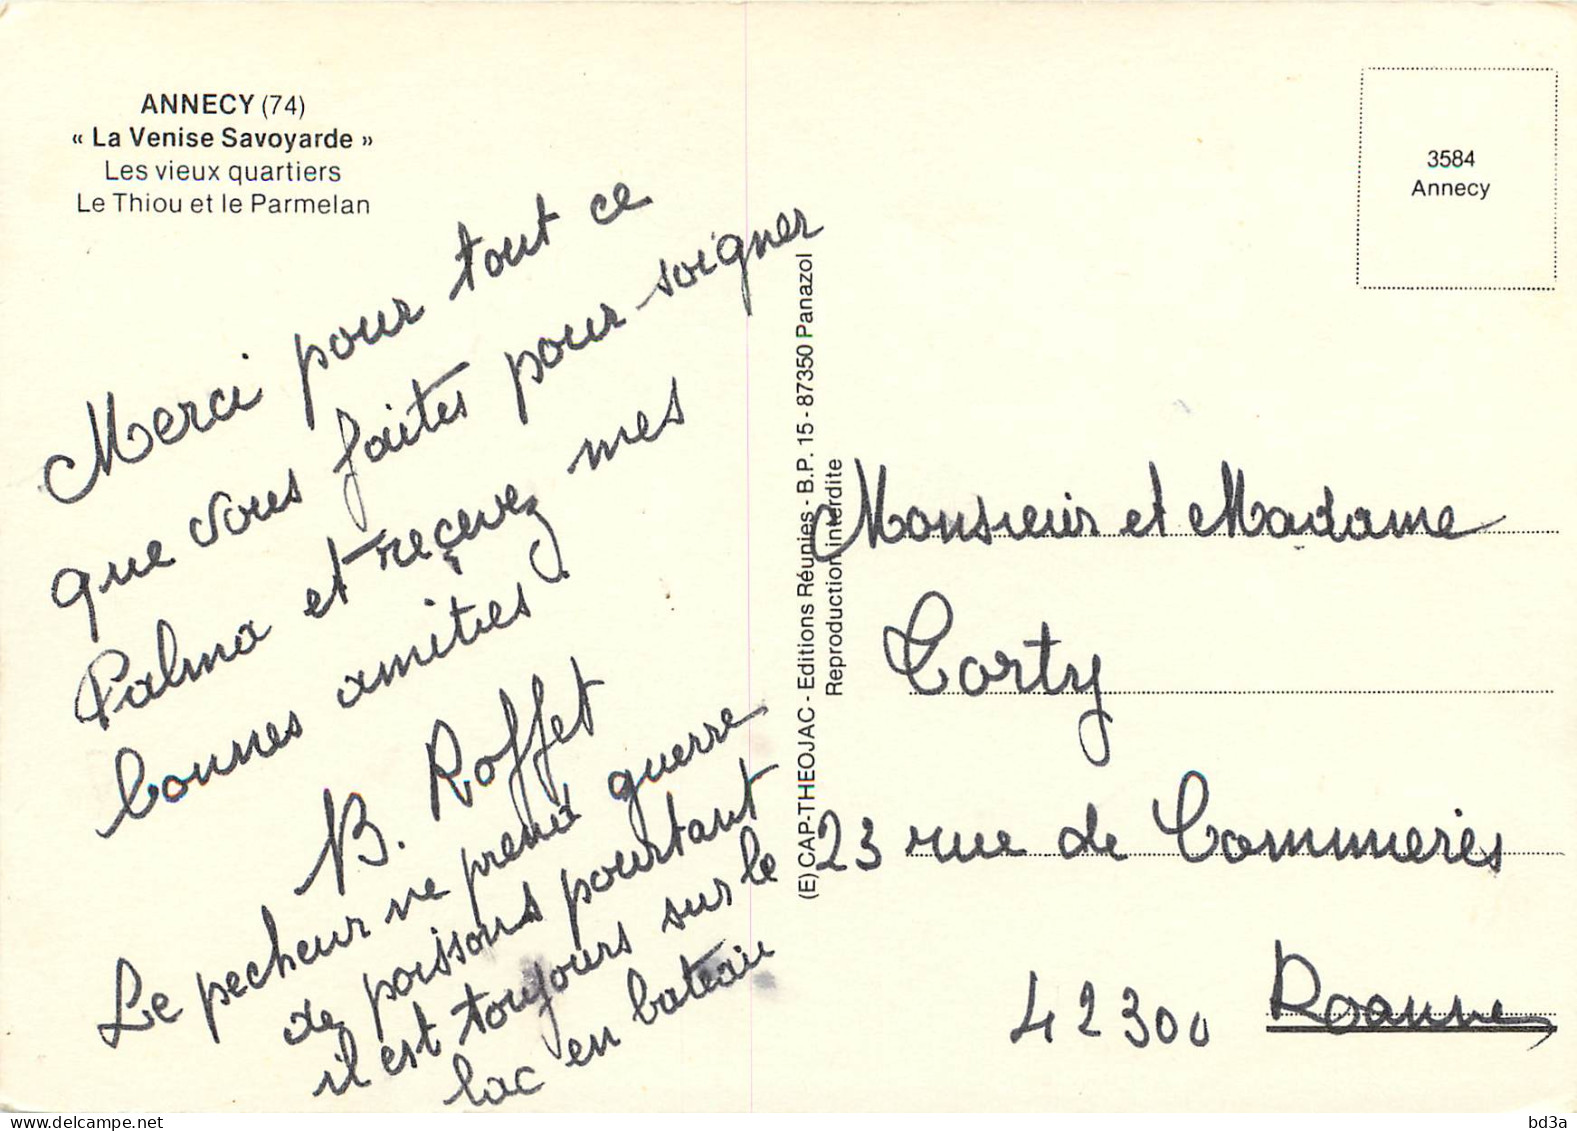 ANNECY (74)
« La Venise Savoyarde »
Les vieux quartiers
Le Thiou et le Parmelan
Merci pour tout ce
que vous faites pour soigner
Palma et reçevez mes
bonnes amitiés
B. Roffet
Le pecheur ne prend guerre
de poissons pourtant
il est toujours sur le
lac en bateau
(E) CAP-THEOJAC - Editions Réunies - B.P. 15 - 87350 Panazol
Reproduction interdite
3584
Annecy
Monsieur et Madame
Corty
23 rue de Commières
42300 Roanne
delcampe.net
bd3a